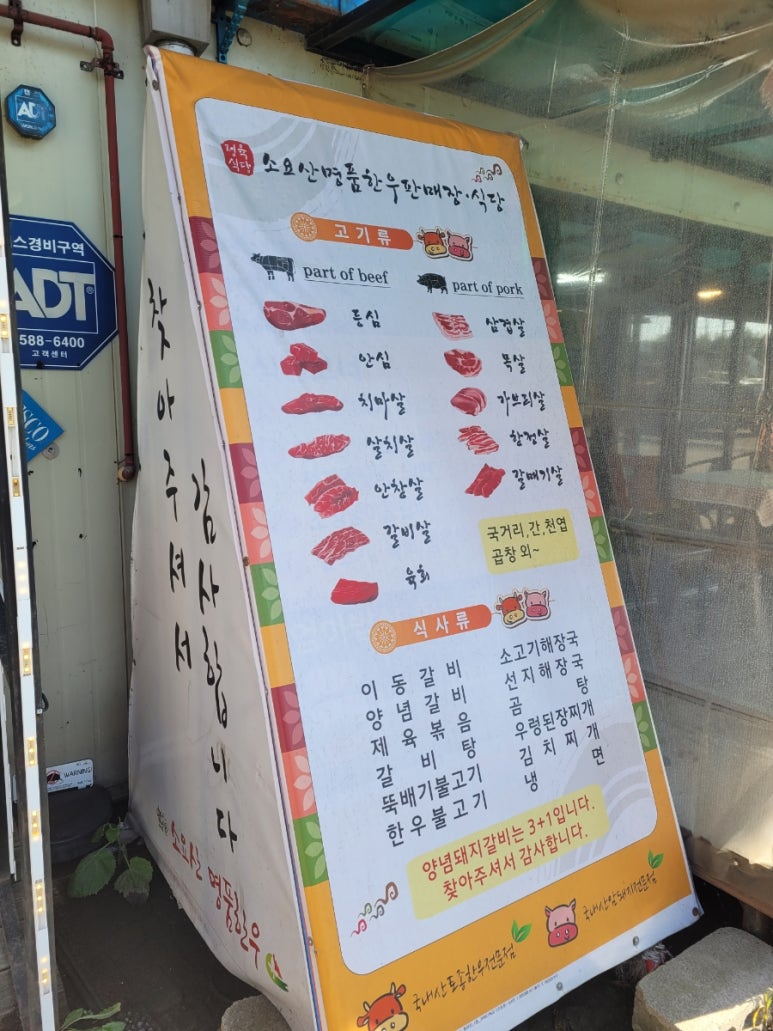 정육
식당
소요산명품한우판매장·식당
고기류
part of beef
part of pork
등심
안심
치마살
살치살
안창살
갈비살
육회
삼겹살
목살
가브리살
항정살
갈매기살
국거리,간,천엽
곱창 외~
식사류
이동갈비
양념갈비
제육볶음
갈비탕
뚝배기불고기
한우불고기
소고기해장국
선지해장국
곰탕
우렁된장찌개
김치찌개
냉면
양념돼지갈비는 3+1입니다.
찾아주셔서 감사합니다.
국내산토종한우전문점
국내산암돼지전문점
찾아주셔서
감사합니다
소요산 명품한우
ADT
스경비구역
ADT
588-6400
고객센터
WARNING